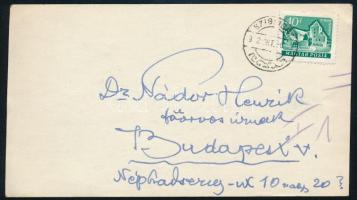 40f
MAGYAR POSTA
Dr. Nádor Henrik
főorvos úrnak
Budapest V.
Néphadsereg-u 10
20 ?